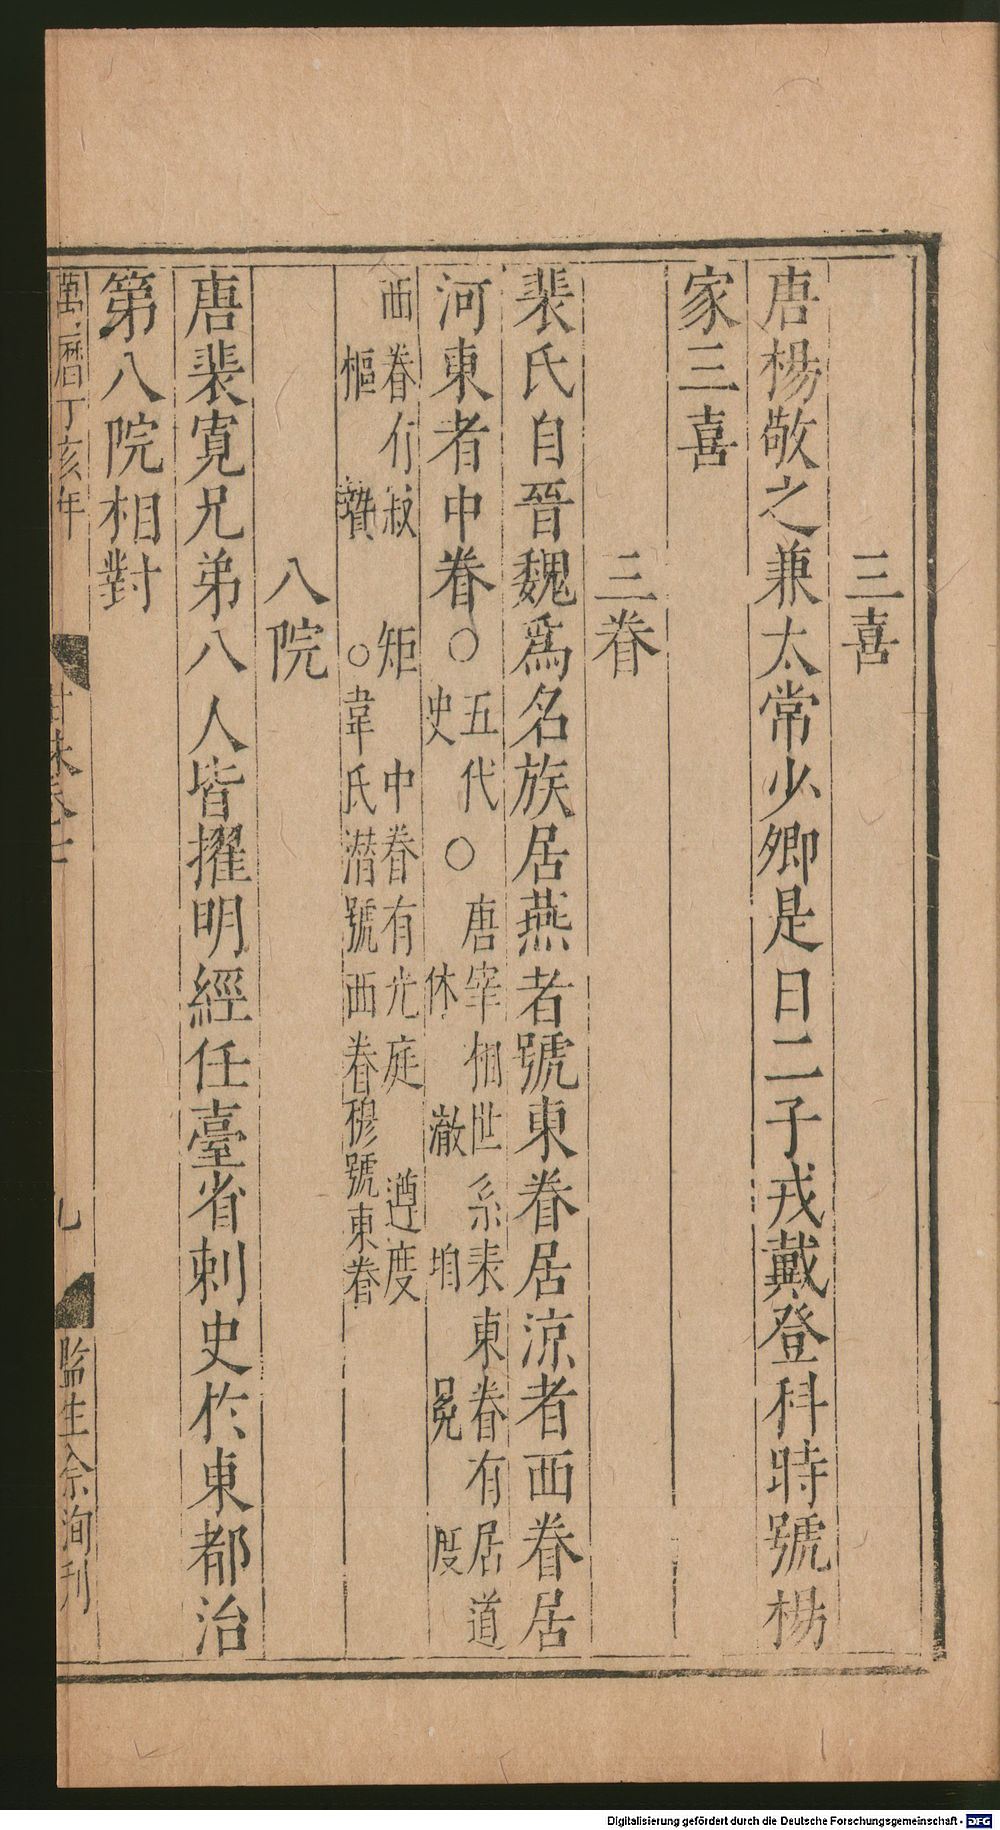 三喜
唐楊敬之兼太常少卿是日二子戎戴登科時號楊
家三喜
三眷
裴氏自晉魏爲名族居燕者號東眷居涼者西眷居
河東者中眷○五代
史○唐宰相世系表東眷有居道
休 澈 垍 冕 度
西眷有寂 矩 中眷有光庭 遵度
樞 贄○韋氏潛號西眷穆號東眷
八院
唐裴寬兄弟八人皆擢明經任臺省刺史於東都治
第八院相對
萬曆丁亥年
九
監生余洵刊
Digitalisierung gefördert durch die Deutsche Forschungsgemeinschaft - DFG